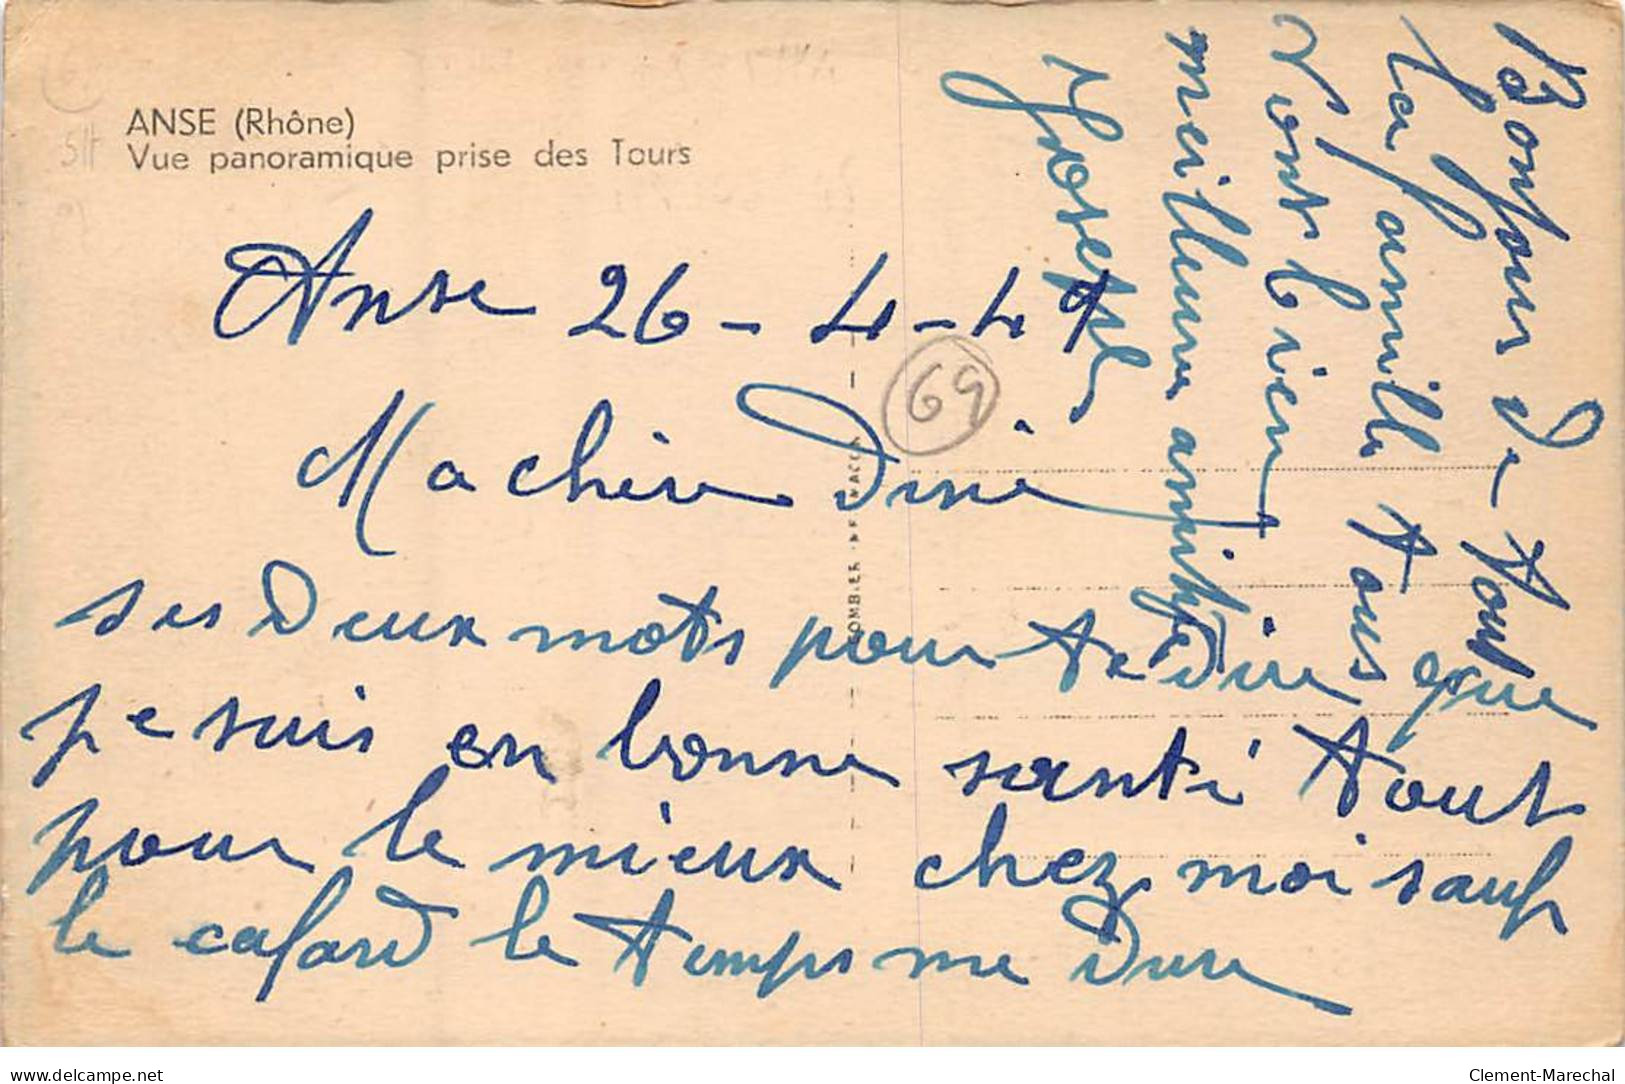 ANSE (Rhône)
Vue panoramique prise des Tours
Anse 26-4-49
Ma chère Dine
ses deux mots pour te dire que
je suis en bonne santé tout
pour le mieux chez moi sauf
le cafard le temps me dure
Bonjour de toute
la famille tous
vont bien
meilleure amitié
Joseph
69
COMBIER MACON
Clement-Marechal